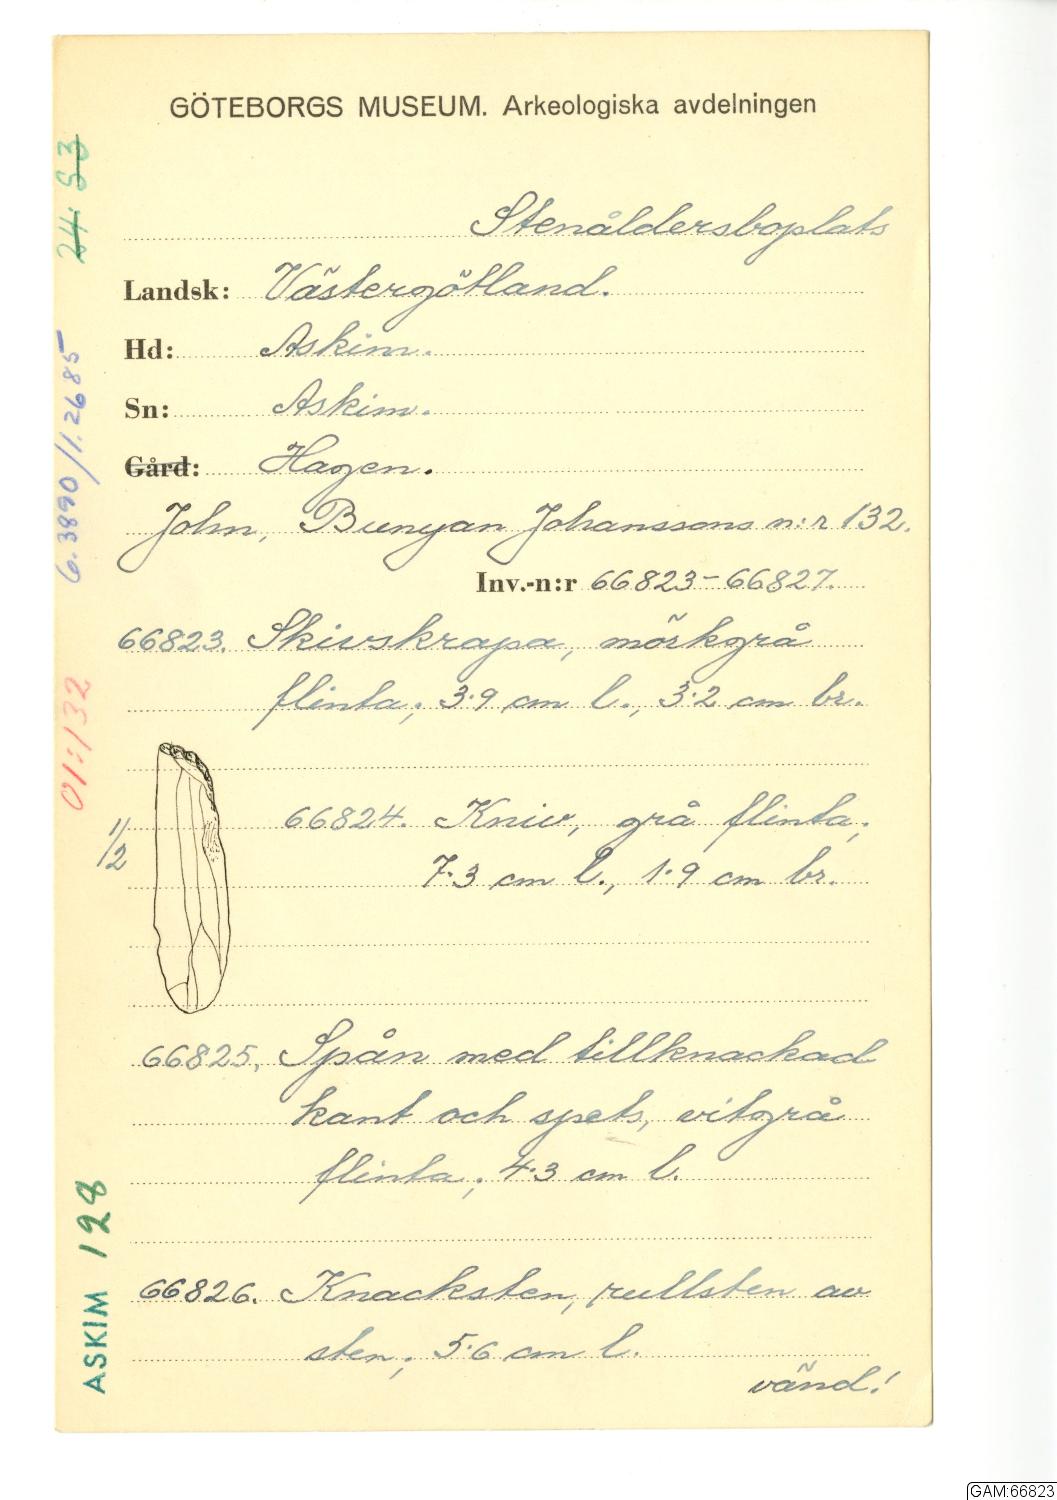 GÖTEBORGS MUSEUM. Arkeologiska avdelningen
Stenåldersboplats
Landsk: Västergötland.
Hd: Askim.
Sn: Askim.
Gård: Hagen.
John, Bunyan Johanssons n:r 132.
Inv.-n:r 66823-66827.
66823. Skivskrapa, mörkgrå
flinta; 3.9 cm l., 3.2 cm br.
1/2
66824. Kniv, grå flinta;
7.3 cm l., 1.9 cm br.
66825. Spån med tillknackad
kant och spets, vitgrå
flinta; 4.3 cm l.
66826. Knacksten, rullsten av
sten; 5.6 cm l.
vänd!
24 S3
6.3890/1.2685
01:132
ASKIM 128
GAM:66823